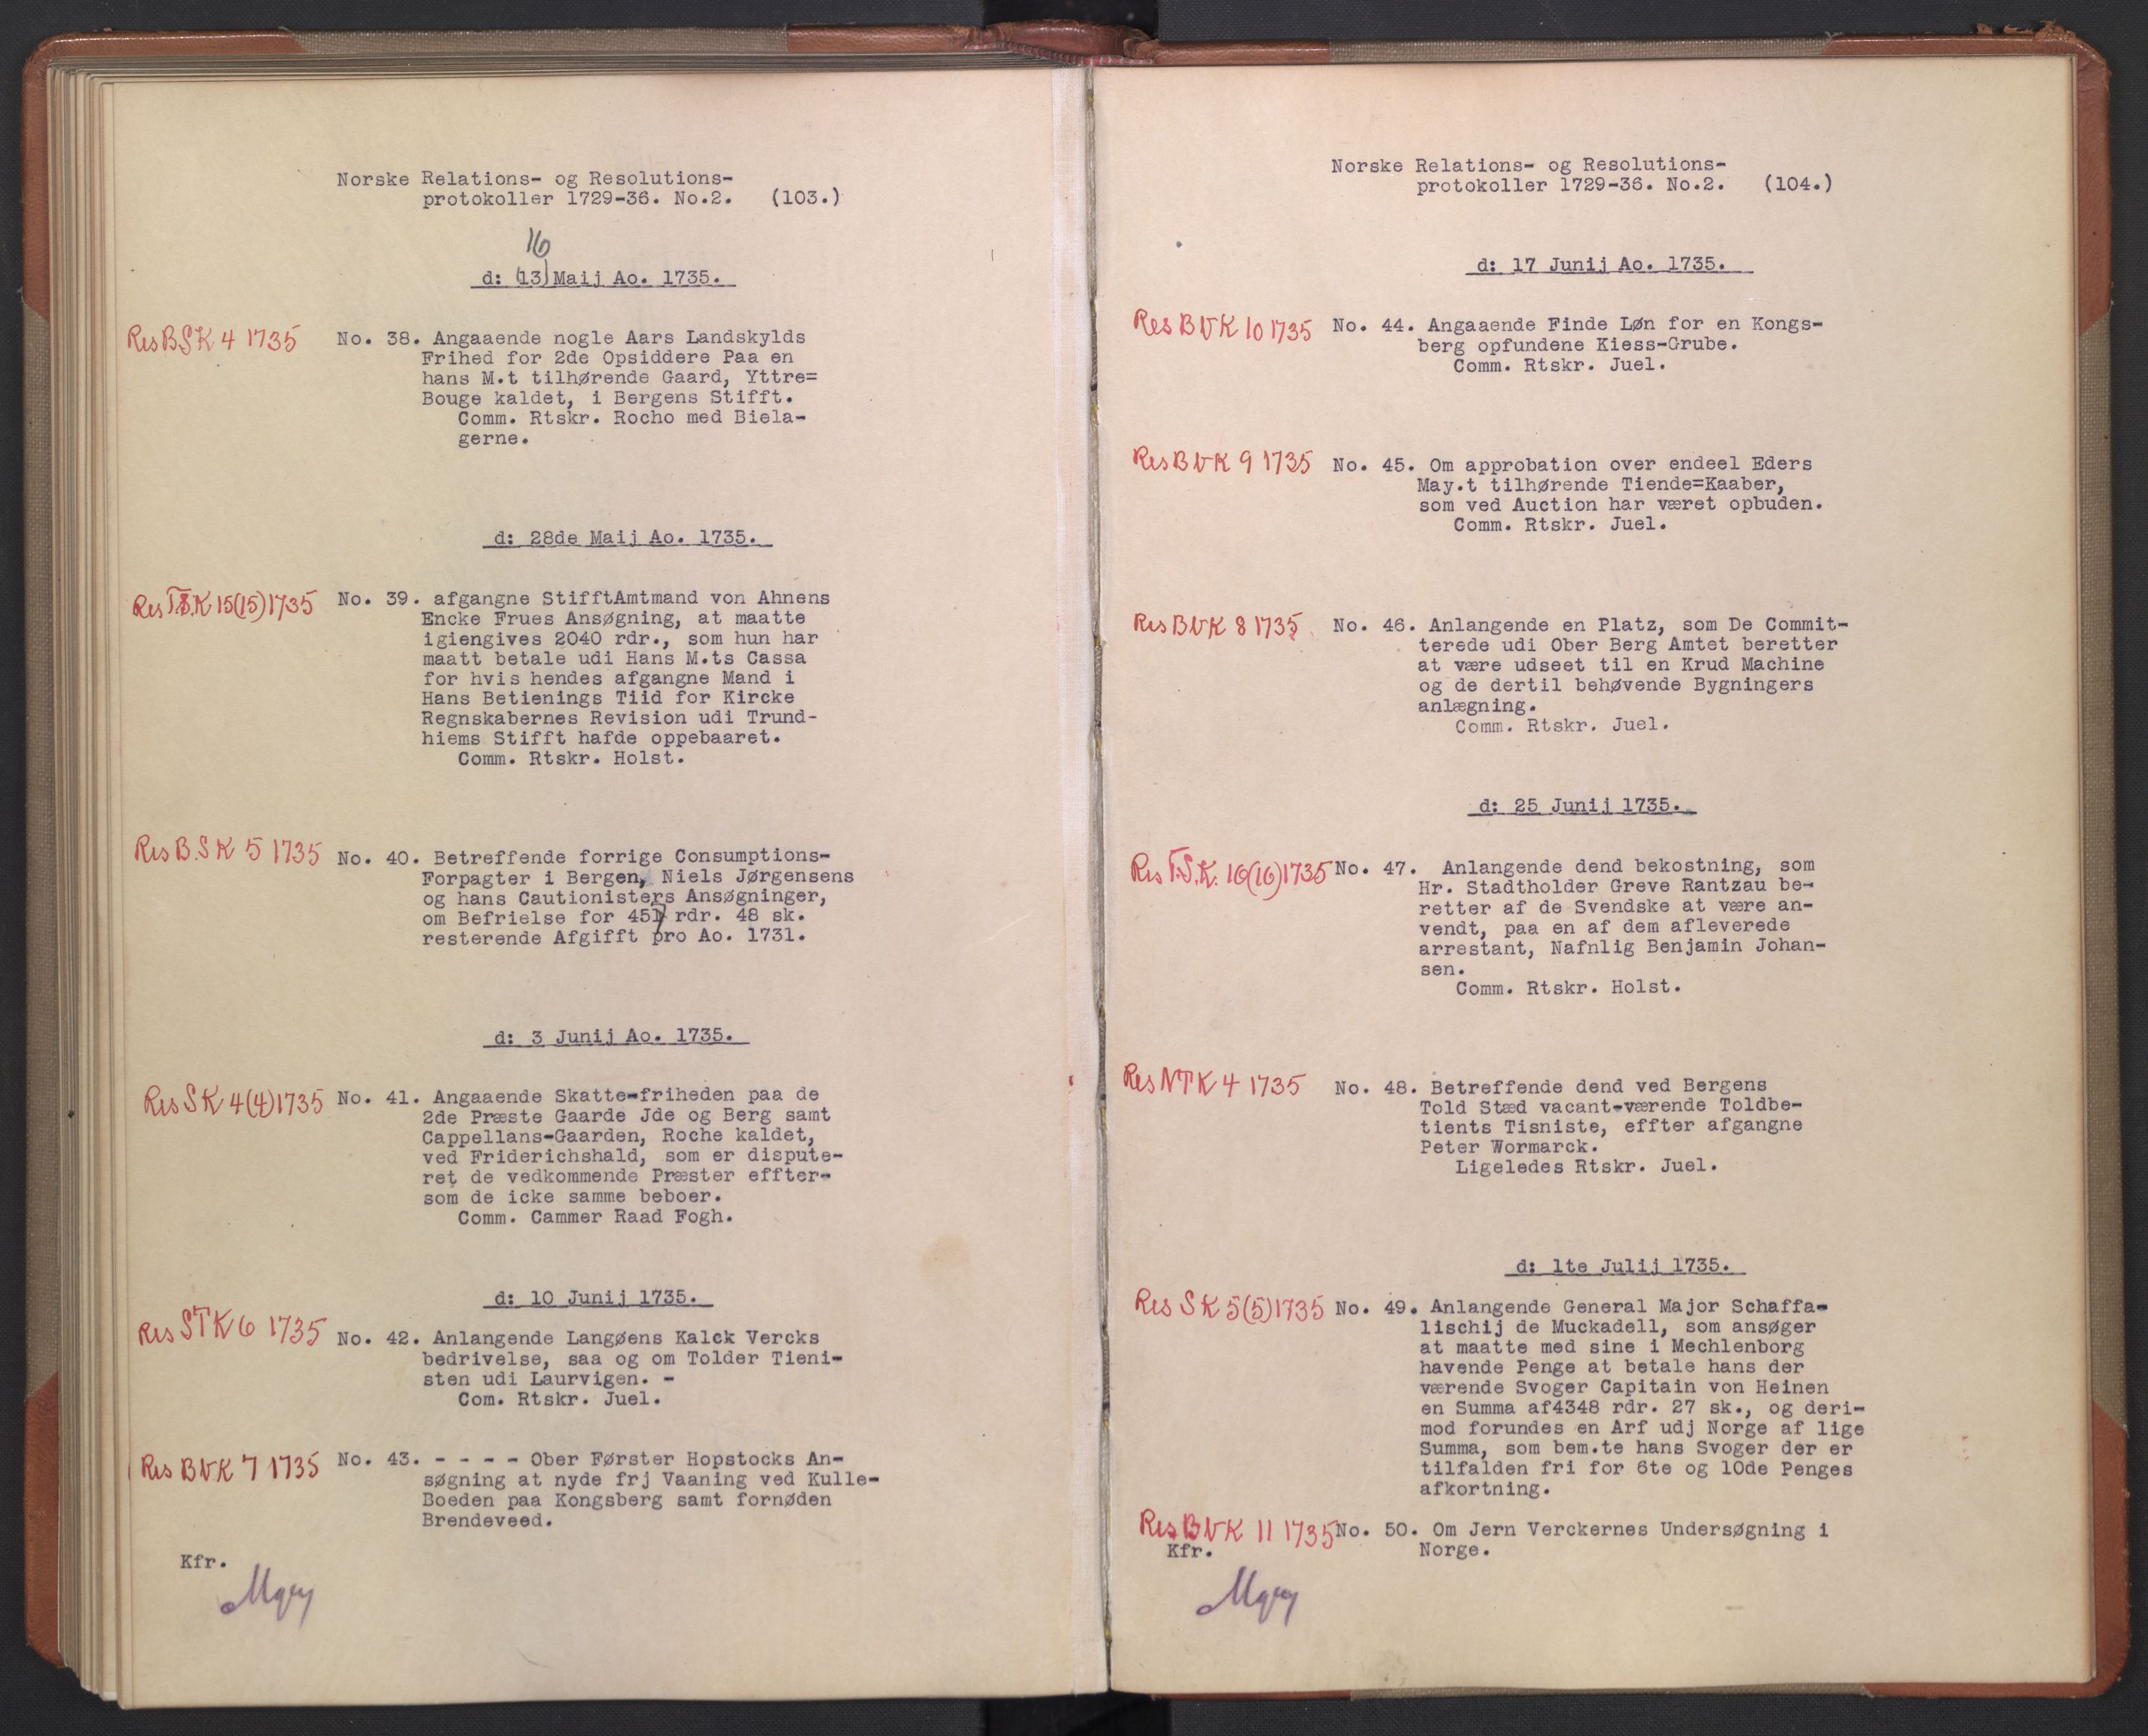 Norske Relations- og Resolutions-
protokoller 1729-36. No.2. (103.)
16
d: (13) Maij Ao. 1735.
Res BSK 4 1735 No. 38. Angaaende nogle Aars Landskylds
Frihed for 2de Opsiddere Paa en
hans M.t tilhørende Gaard, Yttre=
Bouge kaldet, i Bergens Stifft.
Comm. Rtskr. Rocho med Biela-
gerne.
d: 28de Maij Ao. 1735.
Res T.S.K 15(15) 1735 No. 39. afgangne StifftAmtmand von Ahnens
Encke Frues Ansøgning, at maatte
igiengives 2040 rdr., som hun har
maatt betale udi Hans M.ts Cassa
for hvis hendes afgangne Mand i
Hans Betienings Tiid for Kircke
Regnskabernes Revision udi Trund-
hiems Stifft hafde oppebaaret.
Comm. Rtskr. Holst.
Res B.S K 5 1735 No. 40. Betreffende forrige Consumptions-
Forpagter i Bergen, Niels Jørgensens
og hans Cautionisters Ansøgninger,
om Befrielse for 457 rdr. 48 sk.
resterende Afgifft pro Ao. 1731.
d: 3 Junij Ao. 1735.
Res SK 4(4) 1735 No. 41. Angaaende Skatte-friheden paa de
2de Præste Gaarde Jde og Berg samt
Cappellans-Gaarden, Roche kaldet,
ved Friderichshald, som er dispute-
ret de vedkommende Præster effter-
som de icke samme beboer.
Comm. Cammer Raad Fogh.
d: 10 Junij 1735.
Res STK 6 1735 No. 42. Anlangende Langøens Kalck Vercks
bedrivelse, saa og om Tolder Tieni-
sten udi Laurvigen. -
Com. Rtskr. Juel.
Res BVK 7 1735 No. 43. - - - - Ober Førster Hopstocks An-
søgning at nyde frj Vaaning ved Kulle-
Boeden paa Kongsberg samt fornøden
Brendeveed.
Kfr.
Norske Relations- og Resolutions-
protokoller 1729-36. No.2. (104.)
d: 17 Junij Ao. 1735.
Res BVK 10 1735 No. 44. Angaaende Finde Løn for en Kongs-
berg opfundene Kiess-Grube.
Comm. Rtskr. Juel.
Res BVK 9 1735 No. 45. Om approbation over endeel Eders
May.t tilhørende Tiende=Kaaber,
som ved Auction har været opbuden.
Comm. Rtskr. Juel.
Res BVK 8 1735 No. 46. Anlangende en Platz, som De Commit-
terede udi Ober Berg Amtet beretter
at være udseet til en Krud Machine
og de dertil behøvende Bygningers
anlægning.
Comm. Rtskr. Juel.
d: 25 Junij 1735.
Res T.S.K. 16(16) 1735 No. 47. Anlangende dend bekostning, som
Hr. Stadtholder Greve Rantzau be-
retter af de Svendske at være an-
vendt, paa en af dem afleverede
arrestant, Nafnlig Benjamin Johan-
sen.
Comm. Rtskr. Holst.
Res NTK 4 1735 No. 48. Betreffende dend ved Bergens
Told Stæd vacant-værende Toldbe-
tients Tisniste, effter afgangne
Peter Wormarck.
Ligeledes Rtskr. Juel.
d: 1te Julij 1735.
Res SK 5(5) 1735 No. 49. Anlangende General Major Schaffa-
lischij de Muckadell, som ansøger
at maatte med sine i Mechlenborg
havende Penge at betale hans der
værende Svoger Capitain von Heinen
en Summa af4348 rdr. 27 sk., og deri-
mod forundes en Arf udj Norge af lige
Summa, som bem.te hans Svoger der er
tilfalden fri for 6te og 10de Penges
afkortning.
Res BVK 11 1735 No. 50. Om Jern Verckernes Undersøgning i
Norge.
Kfr.